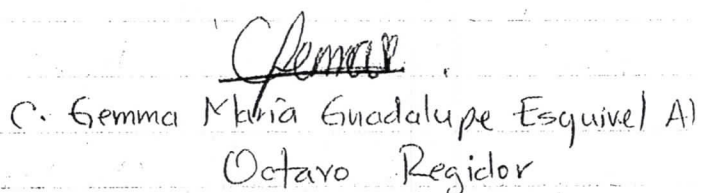 Gemma
C. Gemma María Guadalupe Esquivel Al
Octavo Regidor